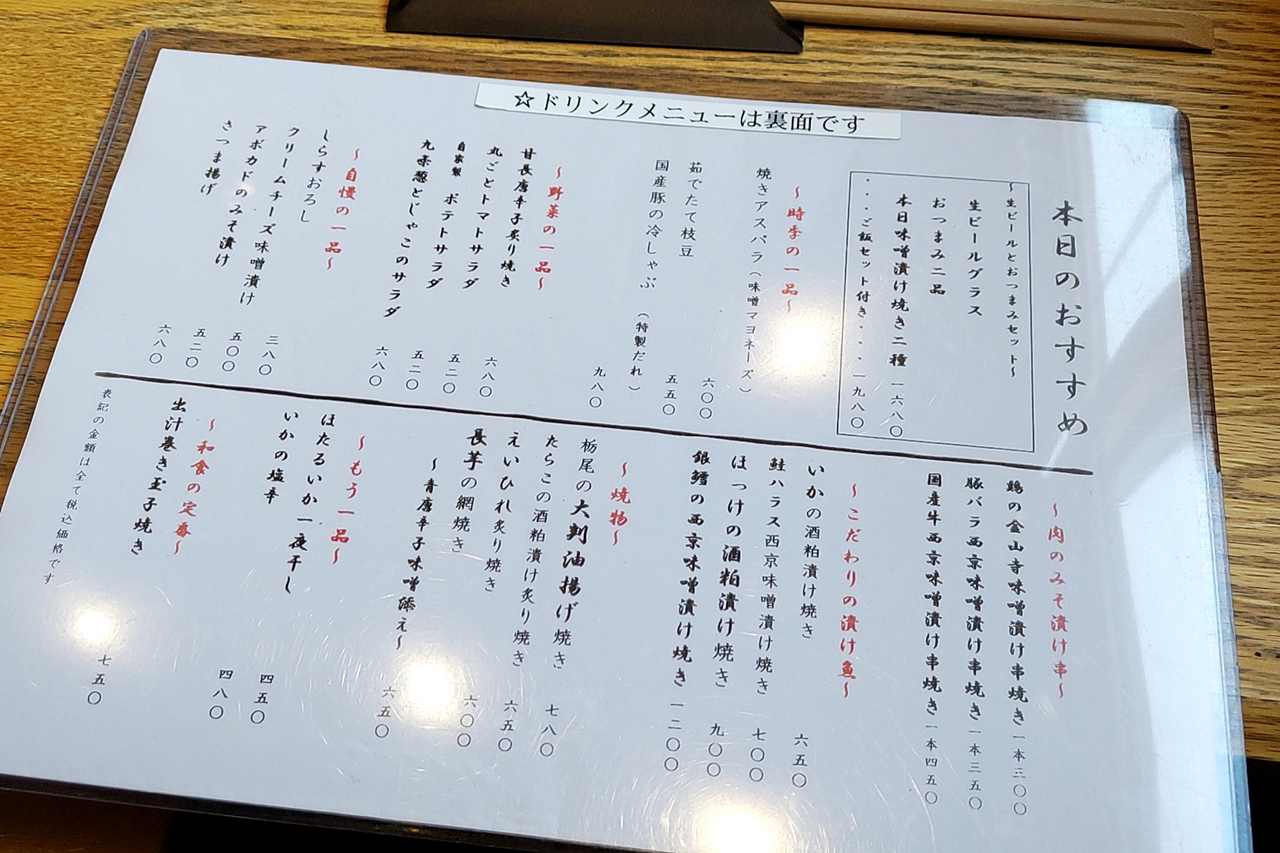 ☆ドリンクメニューは裏面です
本日のおすすめ
～生ビールとおつまみセット～
生ビールグラス
おつまみ二品
本日味噌漬け焼き二種 一六八〇
・・・ご飯セット付き・・・一九八〇
～時季の一品～
焼きアスパラ（味噌マヨネーズ） 六〇〇
茹でたて枝豆 五五〇
国産豚の冷しゃぶ（特製だれ） 九八〇
～野菜の一品～
甘長唐辛子炙り焼き 六八〇
丸ごとトマトサラダ 五二〇
自家製 ポテトサラダ 五二〇
九条葱とじゃこのサラダ 六八〇
～自慢の一品～
しらすおろし 三八〇
クリームチーズ味噌漬け 五〇〇
アボカドのみそ漬け 五二〇
さつま揚げ 六八〇
～肉のみそ漬け串～
鶏の金山寺味噌漬け串焼き 一本三〇〇
豚バラ西京味噌漬け串焼き 一本三五〇
国産牛西京味噌漬け串焼き 一本四五〇
～こだわりの漬け魚～
いかの酒粕漬け焼き 六五〇
鮭ハラス西京味噌漬け焼き 七〇〇
ほっけの酒粕漬け焼き 九〇〇
銀鱈の西京味噌漬け焼き 一二〇〇
～焼物～
栃尾の大判油揚げ焼き 七八〇
たらこの酒粕漬け炙り焼き 六五〇
えいひれ炙り焼き 六〇〇
長芋の網焼き
～青唐辛子味噌添え～ 六五〇
～もう一品～
ほたるいか一夜干し 四五〇
いかの塩辛 四八〇
～和食の定番～
出汁巻き玉子焼き 七五〇
表記の金額は全て税込価格です